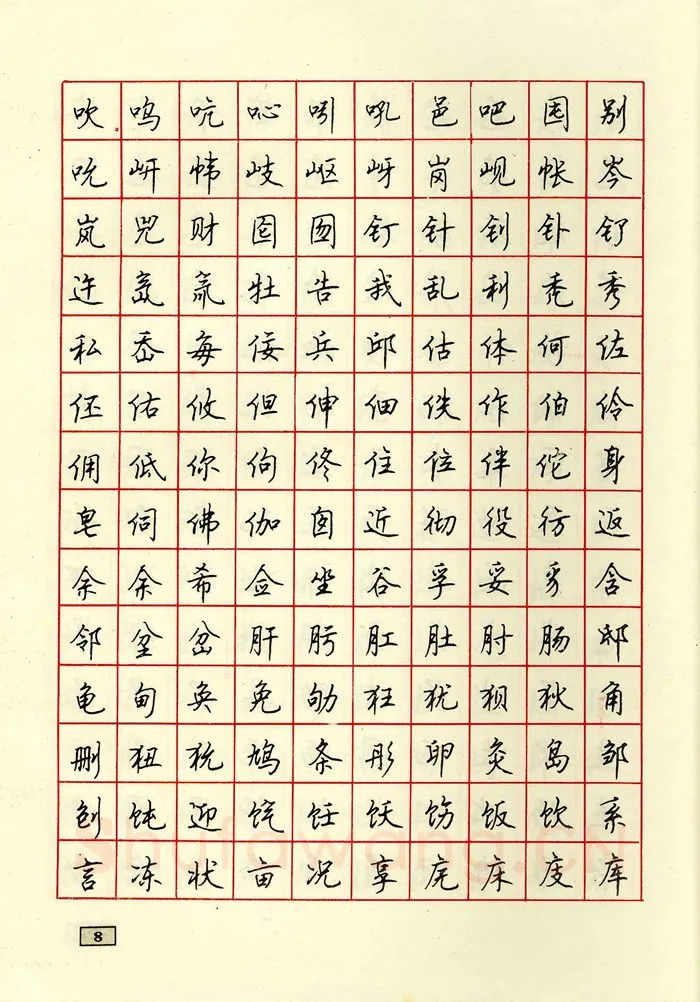 吹呜吭吣吲吼邑吧囤别
吮岍帏岐岖岈岗岘帐岑
岚兕财囵囫钉针钊钋钌
迕氙氚牡告我乱利秃秀
私岙每佞兵邱估体何佐
伾佑攸但伸佃佚作伯伶
佣低你佝佟住位伴佗身
皂伺佛伽囱近彻役彷返
佘余希佥坐谷孚妥豸含
邻坌岔肝肟肛肚肘肠邸
龟甸奂免劬狂犹狈狄角
删狃狁鸠条彤卵灸岛邹
刨饨迎饩饪饫饬饭饮系
言冻状亩况亨庑床庋库
8